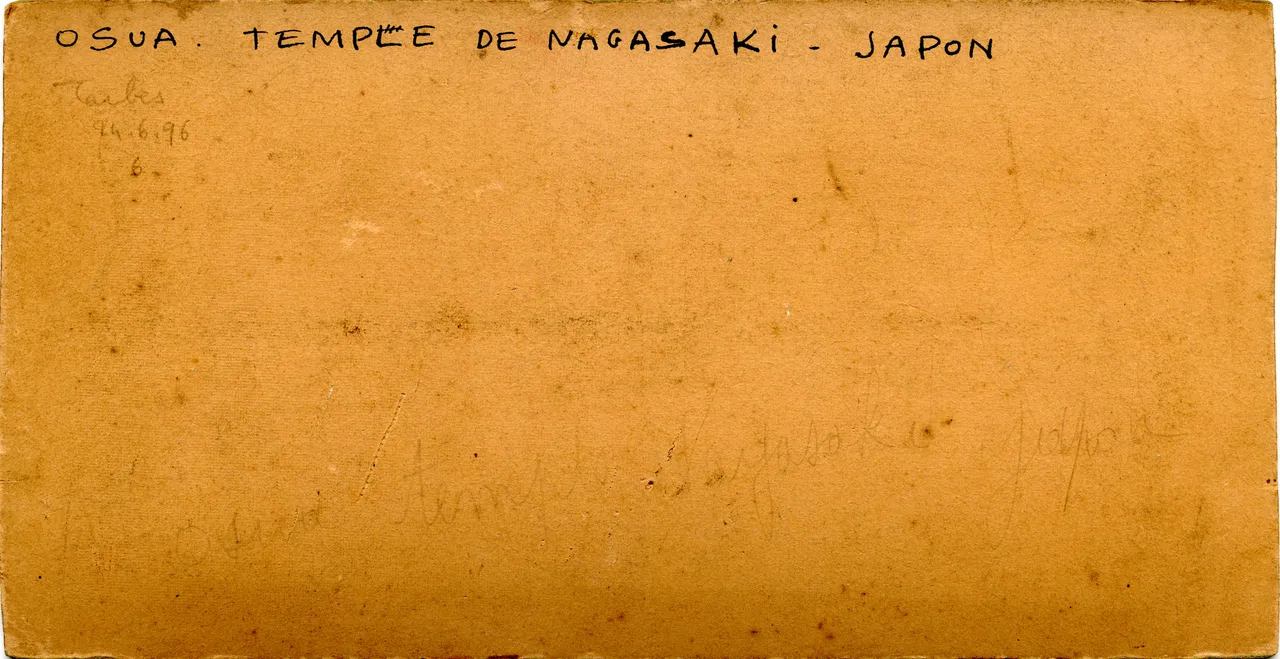 OSUA. TEMPLE DE NAGASAKI - JAPON
Tarbes
24.6.96
6
osua temple Nagasaki japon